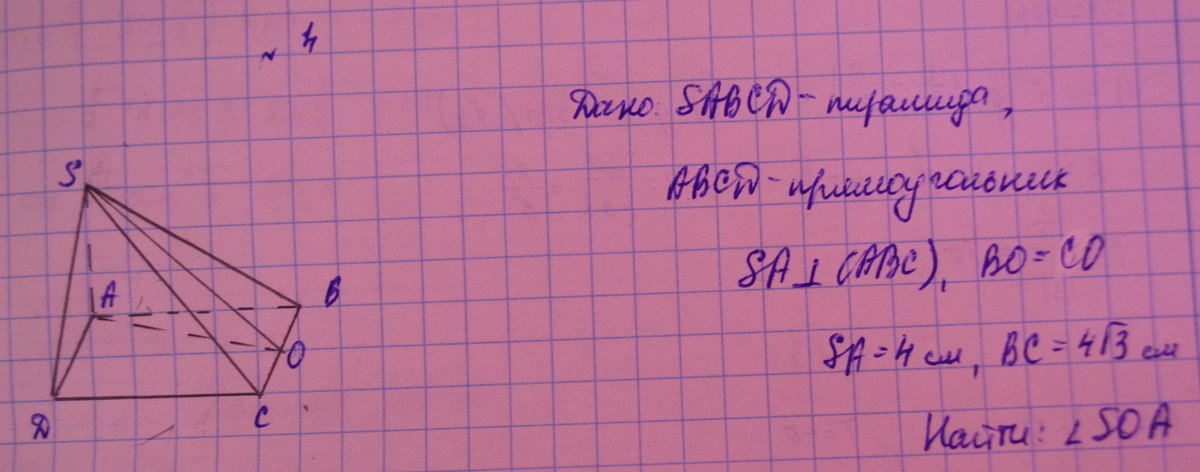 ~ 4
Дано: SABCD - пирамида,
ABCD - прямоугольник
SA ⊥ (ABC), BO = CO
SA = 4 см, BC = 4√3 см
Найти: ∠SOA
S
A
B
O
D
C